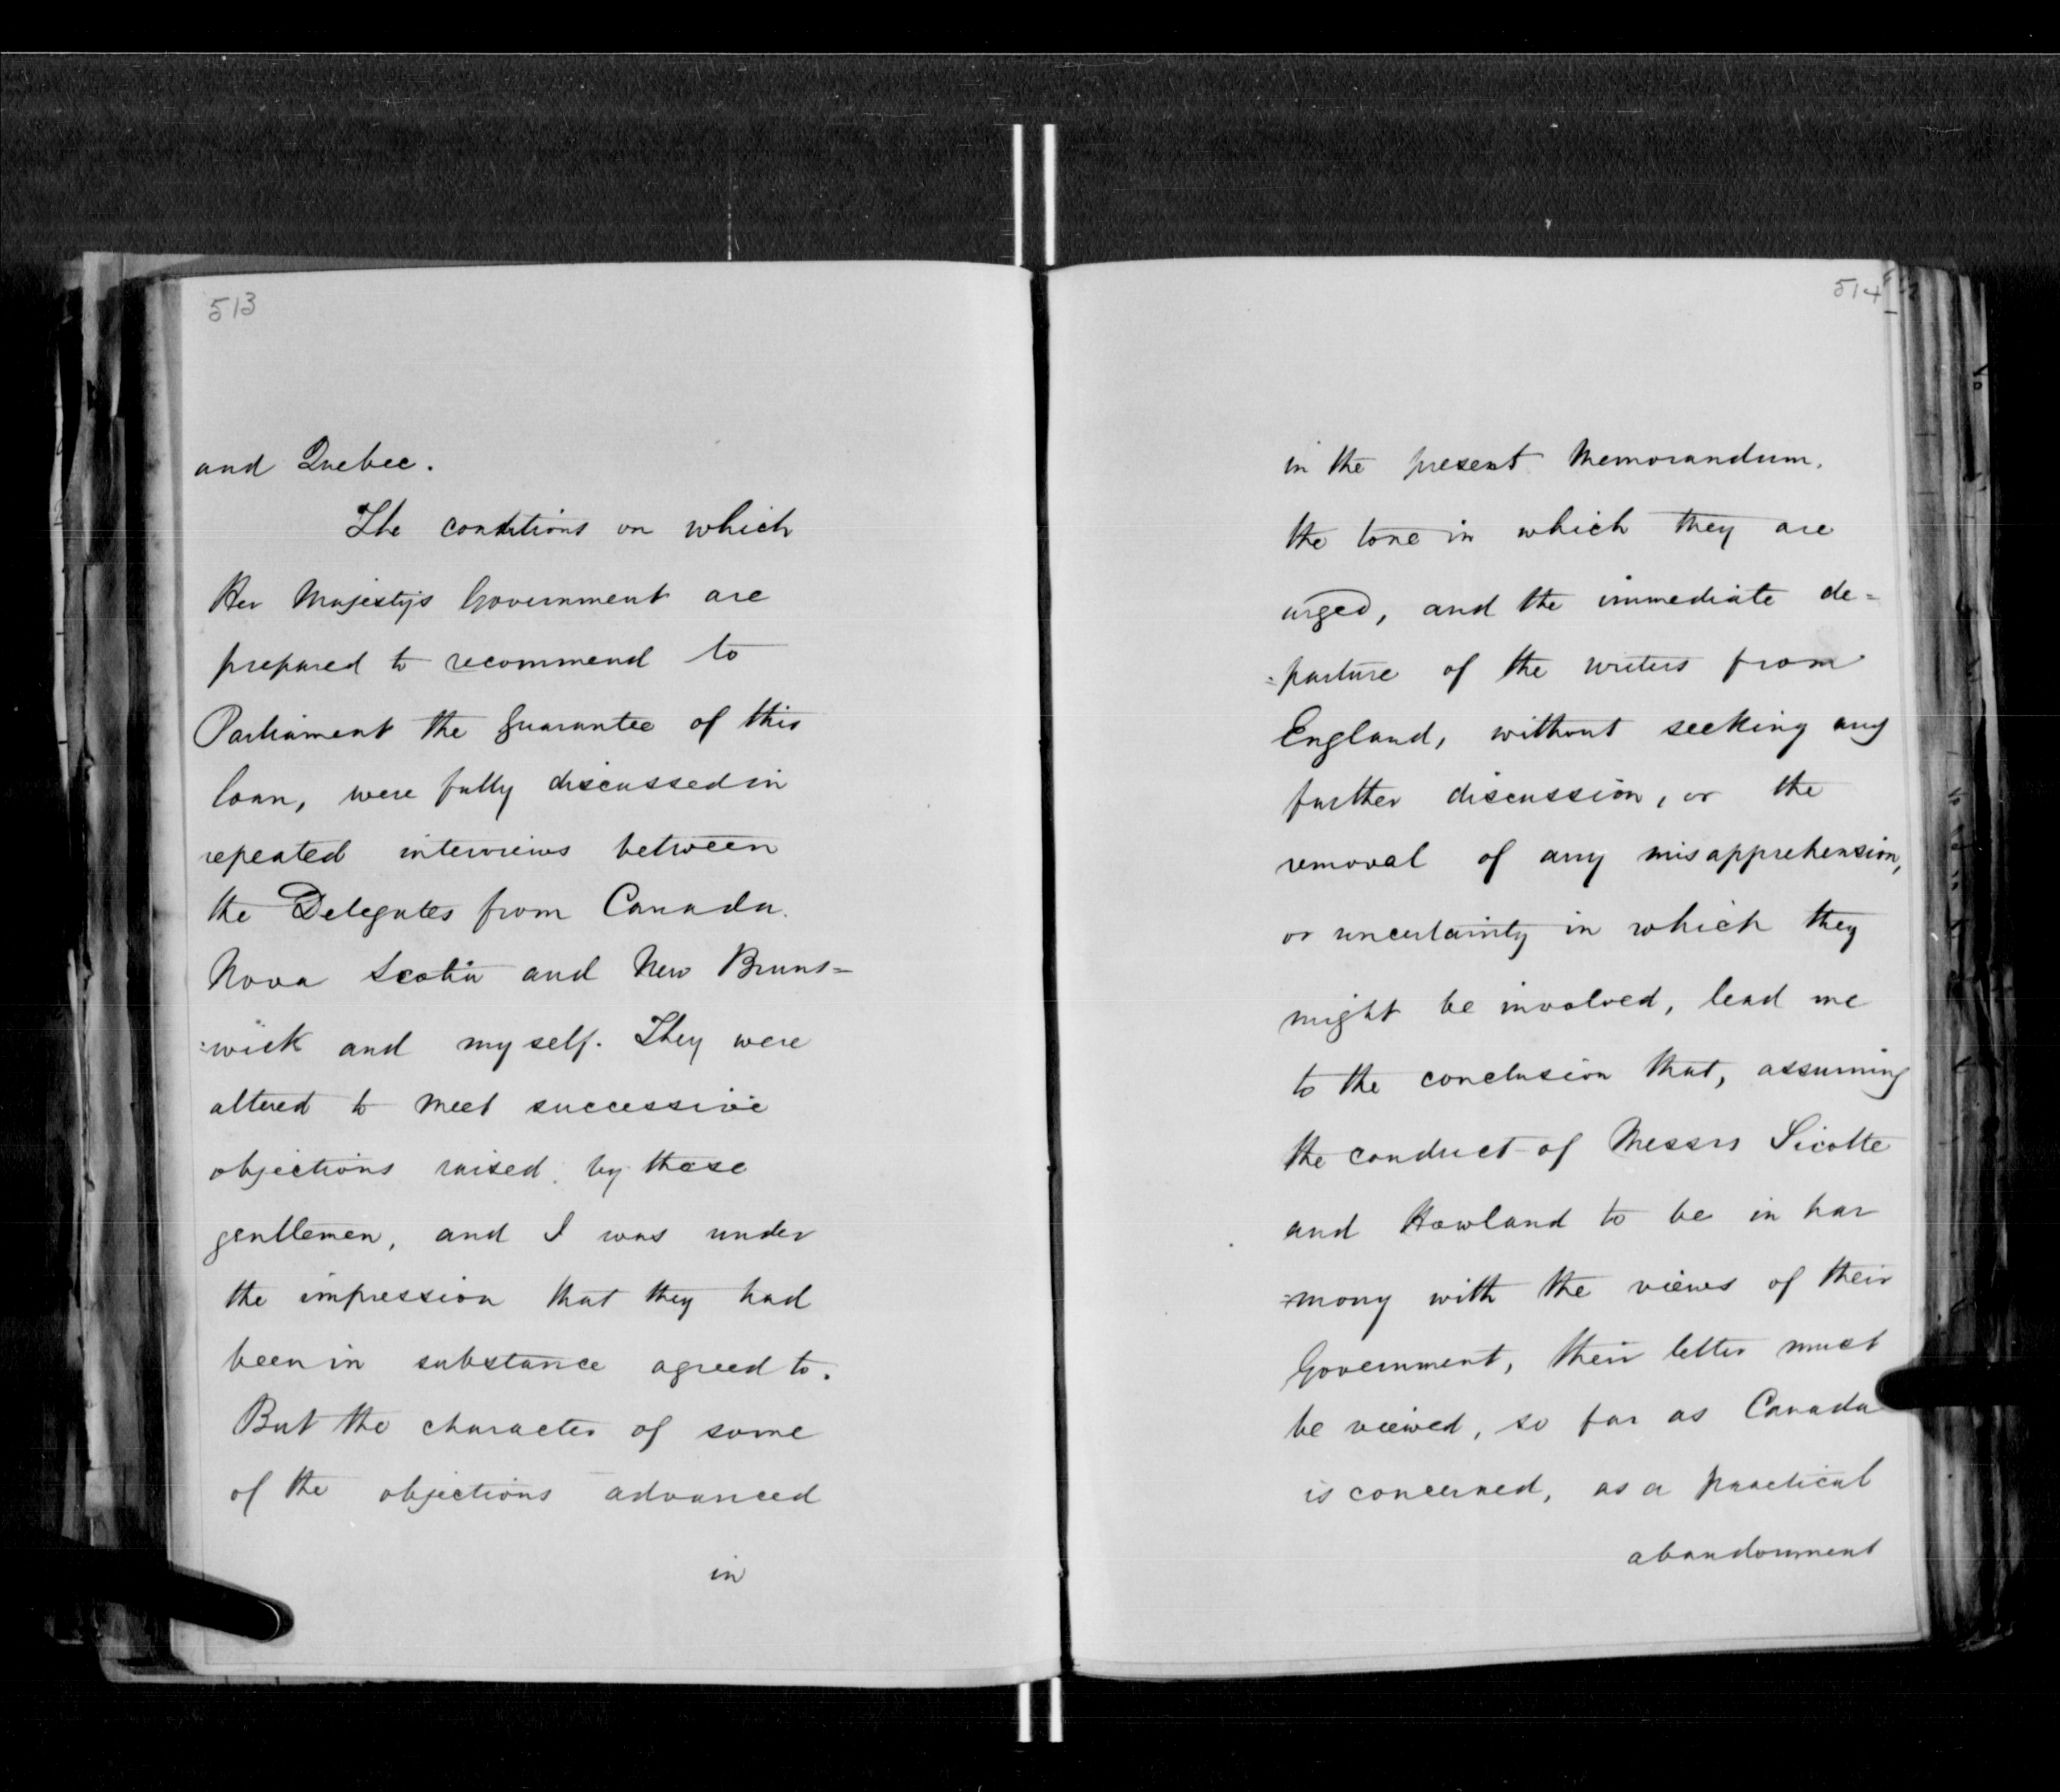 513
and Quebec.
The conditions on which
Her Majesty's Government are
prepared to recommend to
Parliament the guarantee of this
loan, were fully discussed in
repeated interviews between
the Delegates from Canada.
Nova Scotia and New Bruns=
:wick and myself. They were
altered to meet successive
objections raised by these
gentlemen, and I was under
the impression that they had
been in substance agreed to.
But the character of some
of the objections advanced
in
514
in the present Memorandum,
the tone in which they are
urged, and the immediate de=
=parture of the writers from
England, without seeking any
further discussion, or the
removal of any misapprehension,
or uncertainty in which they
might be involved, lead me
to the conclusion that, assuming
the conduct of Messrs Sicotte
and Howland to be in har
=mony with the views of their
Government, their letter must
be viewed, so far as Canada
is concerned, as a practical
abandonment